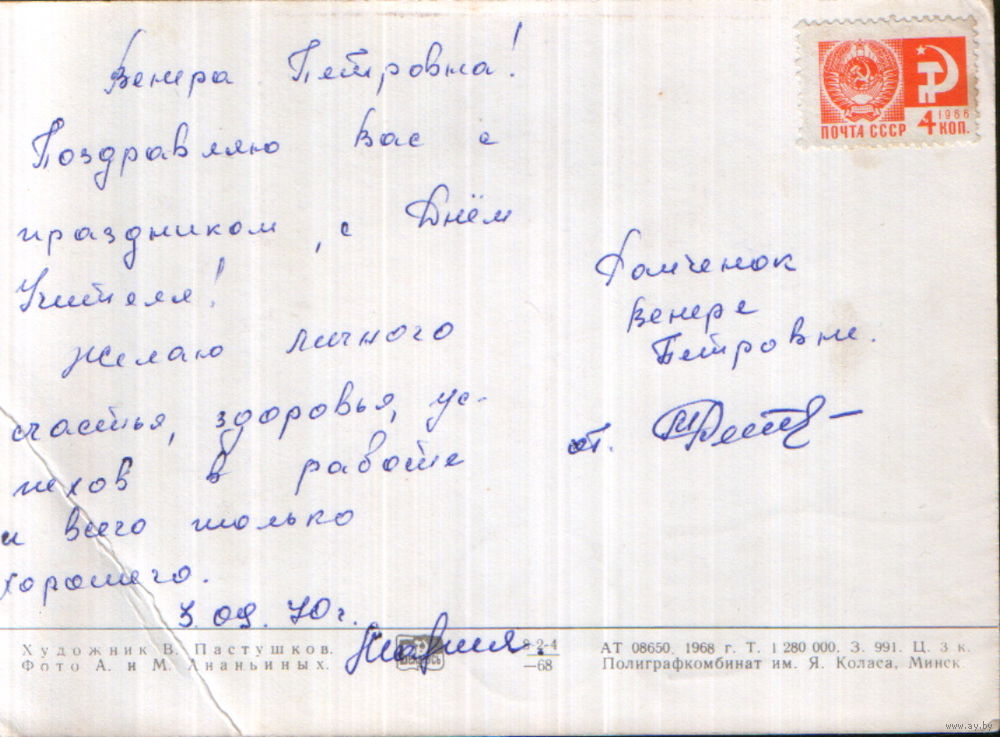 Венера Петровна!
Поздравляю Вас с
праздником, с Днём
Учителя!
Желаю личного
счастья, здоровья, ус-
пехов в работе
и всего только
хорошего.
3.09.70 г.
Мария.
ПОЧТА СССР 4 КОП.
1966
Венере
Петровне.
от.
Художник В. Пастушков.
Фото А. и М. Ананьиных.
8-2-4
—68
АТ 08650, 1968 г. Т. 1 280 000. З. 991. Ц. 3 к.
Полиграфкомбинат им. Я. Коласа, Минск.
www.ay.by